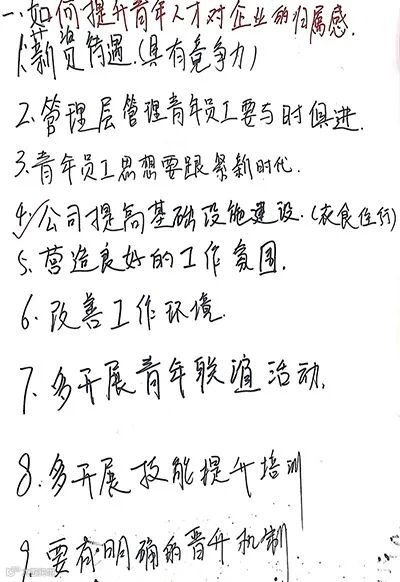 一、如何提升青年人才对企业的归属感.
1.薪资待遇.(具有竟争力)
2.管理层管理青年员工要与时俱进.
3.青年员工思想要跟紧新时代.
4.公司提高基础设施建设.(衣食住行)
5.营造良好的工作氛围.
6.改善工作环境.
7.多开展青年联谊活动.
8.多开展技能提升培训
9.要有明确的晋升机制